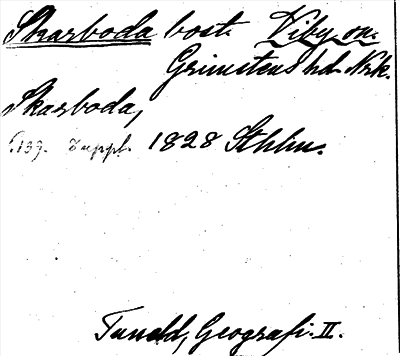 Skarboda bost. Viby sn.
Grimstens hd. Nrk.
Skarboda,
s. 139. Suppl. 1828 Sthlm.
Tuneld, Geografi. II.